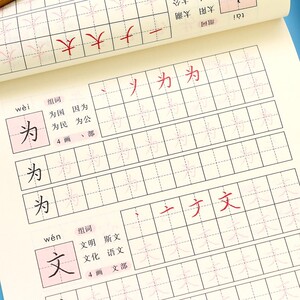 一ナ大太
tài
太阳 太湖
wèi
组词
为国 因为
为民 为公
4画 丶部
丶ソ为为
为
为
为
wén
组词
文明 斯文
文化 语文
4画 文部
丶亠ナ文
文